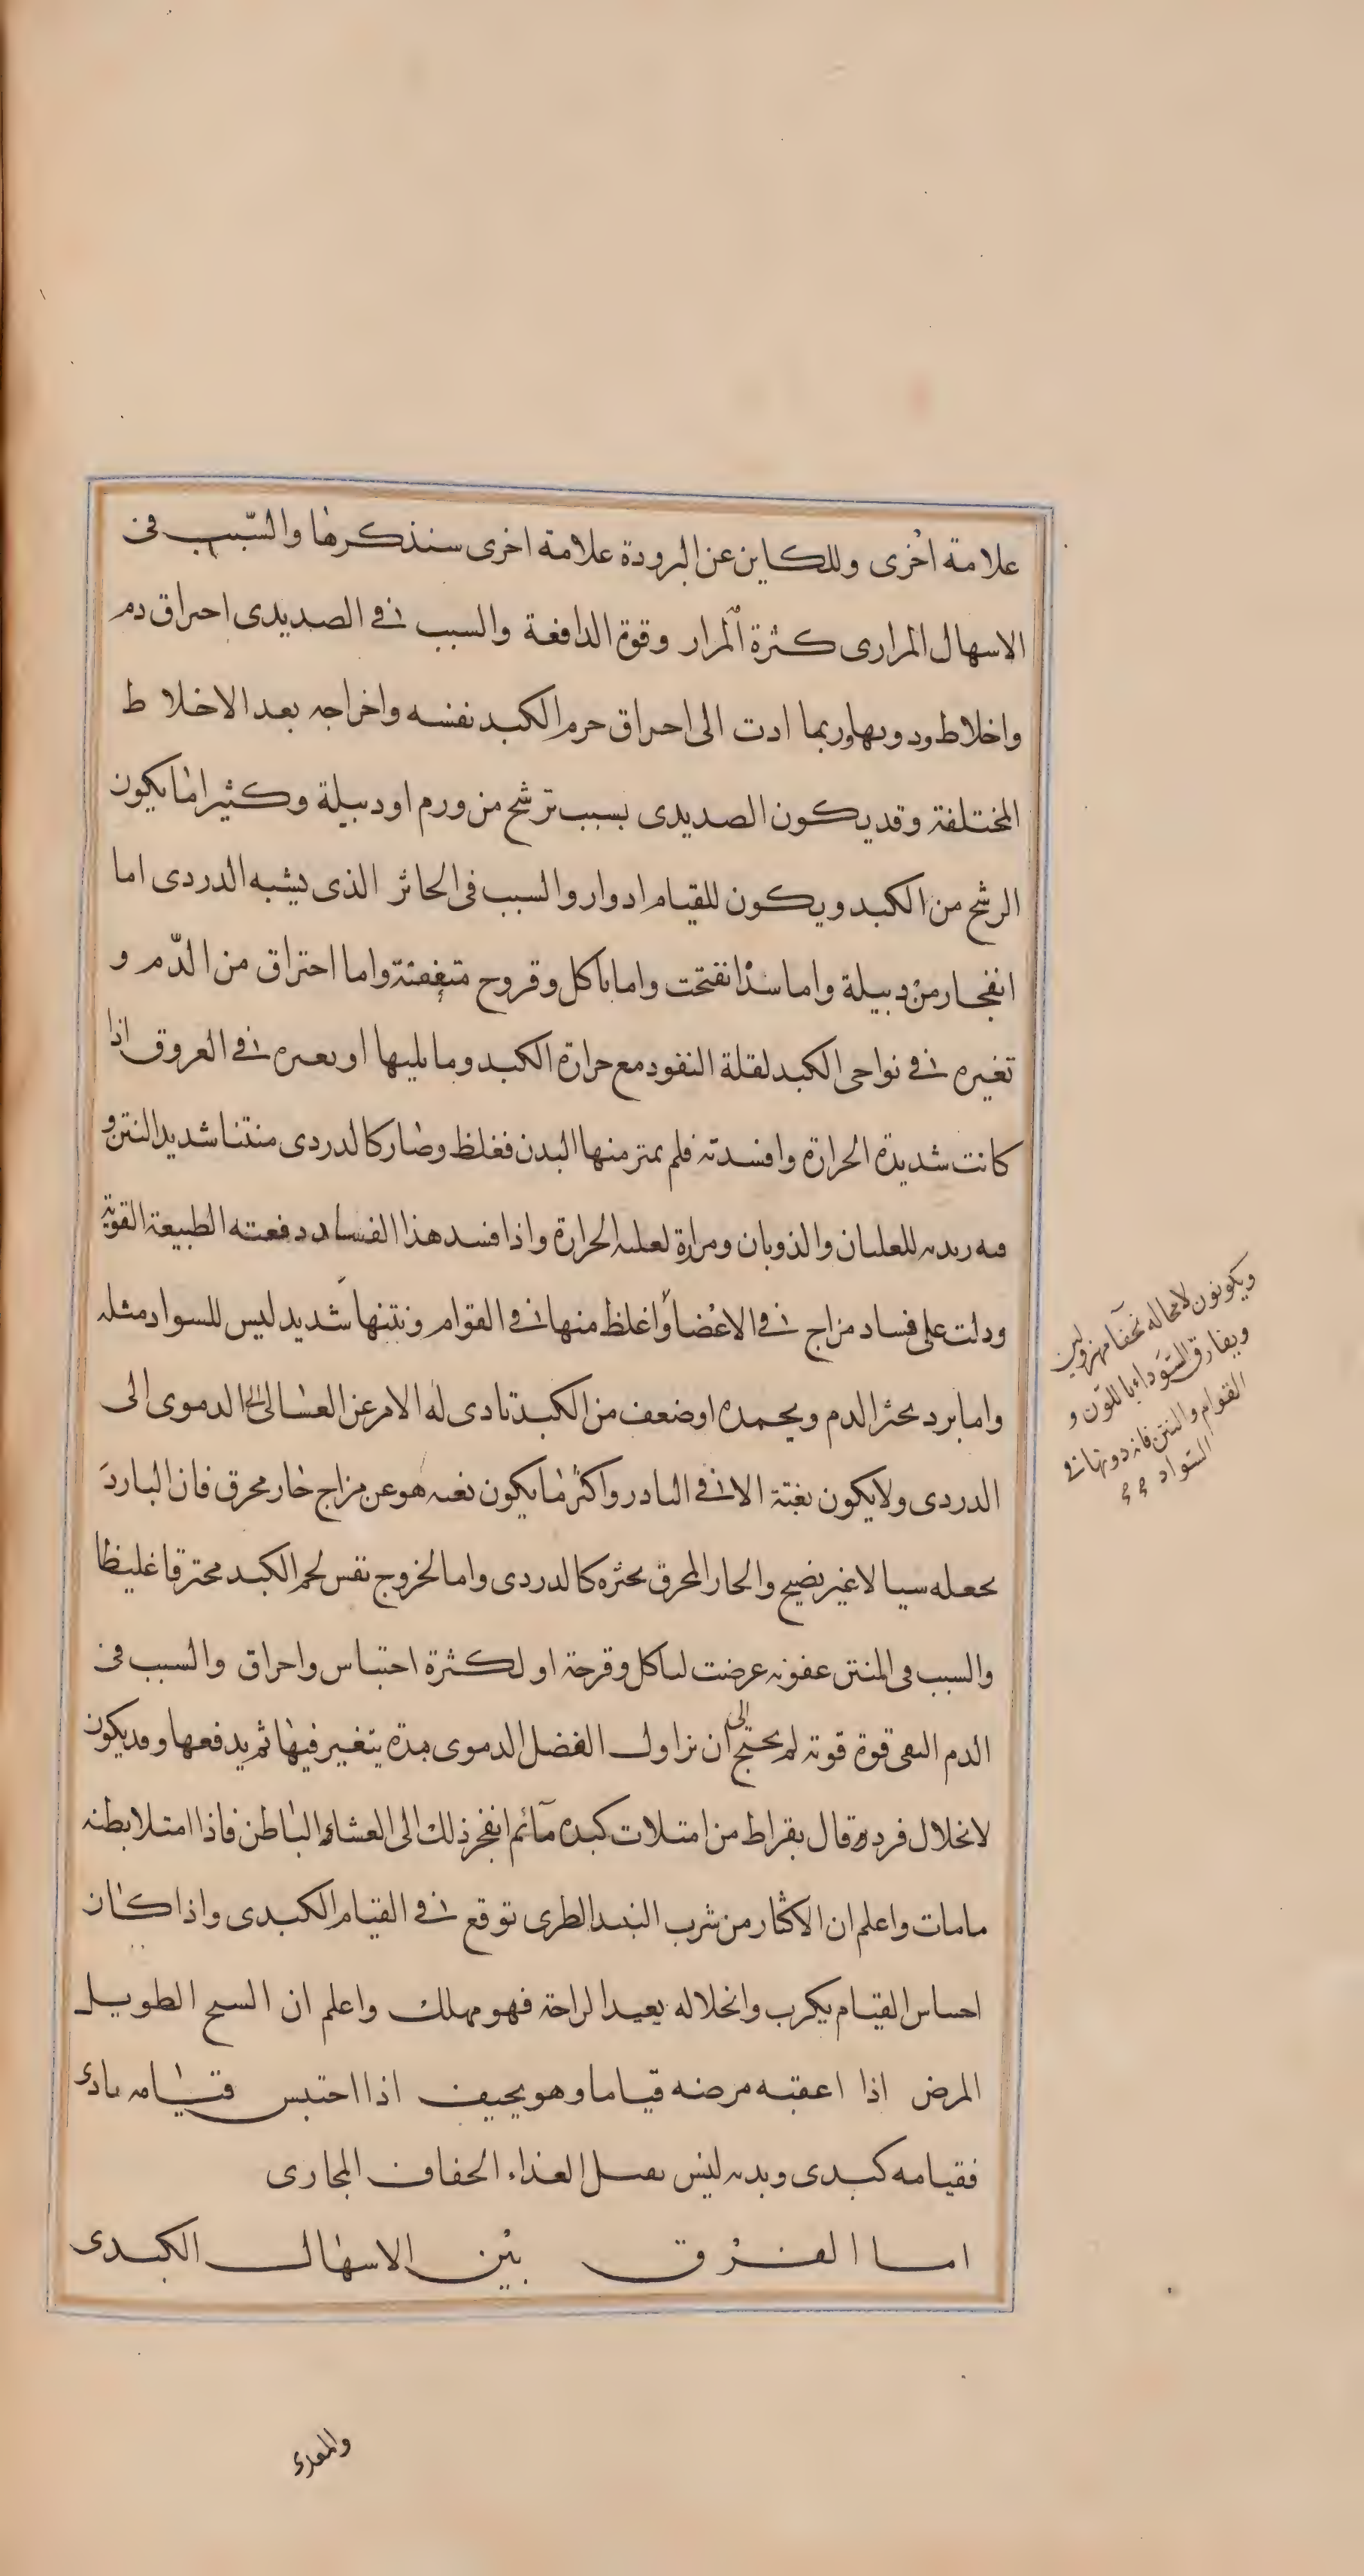 علامة اخرى وللكاين عن البرودة علامة اخرى سنذكرها والسّبب فى
الاسهال المرارى كثرة المرار وقوة الدافعة والسبب فى الصديدى احراق دم
واخلاط ودوبها وربما ادت الى احراق جرم الكبد نفسه واخراجه بعد الاخلاط
المختلفة وقد يكون الصديدى بسبب ترشح من ورم او دبيلة وكثيرا ما يكون
الرشح من الكبد ويكون للقيام ادوار والسبب فى الخاثر الذى يشبه الدردى اما
انفجار من دبيلة واما سدد انفتحت واما تأكل وقروح متعفنة واما احتراق من الدّم و
تغيره فى نواحى الكبد لقلة النفود مع حرارة الكبد وما يليها او تغيره فى العروق اذا
كانت شديدة الحرارة وافسدته فلم يمتر منها البدن فغلظ وصار كالدردى منتنا شديد النتن و
فيه زبدية للغليان والذوبان ومرارة لغلبة الحرارة واذا فسد هذا الفساد دفعته الطبيعة القوية
ودلت على فساد مزاج فى الاعضا واغلظ منها فى القوام ونتنها شديد ليس للسواد مثله
واما برد يخثر الدم ويجمده او ضعف من الكبد تادى له الامر عن الغسالى الى الدموى الى
الدردى ولا يكون بغتة الا فى النادر واكثر ما يكون بغتة هو عن مزاج حار محرق فان البارد
يجعله سيالا غير نضيج والحار المحرق يخثره كالدردى واما لخروج نفس لحم الكبد محترقا غليظا
والسبب فى المنتن عفونة عرضت لتاكل وقرحة او لكثرة احتباس واحراق والسبب فى
الدم النقى قوة قوية لم يحتج الى ان تزاول الفضل الدموى مدة يتغير فيها ثم يدفعها وقد يكون
لانحلال فرد وقال بقراط من امتلات كبده مآء ثم انفجر ذلك الى الغشاء الباطن فاذا امتلا بطنه
ما مات واعلم ان الاكثار من شرب النبيد الطرى توقع فى القيام الكبدى واذا كان
احساس القيام يكرب وانحلاله يعيد الراحة فهو مهلك واعلم ان السبح الطويل
المرض اذا اعقبه مرضه قياما وهو يحيف اذا احتبس قيامه تادى
فقيامه كبدى وبدنه ليس يقبل الغذاء الجفاف المجارى
اما الفرق بين الاسهال الكبدى
ويكونون لا محاله نحفآ مهزولين
ويفارق السّوداء باللّون و
القوام والنتن فانه دونها فى
السّواد
والمعدى